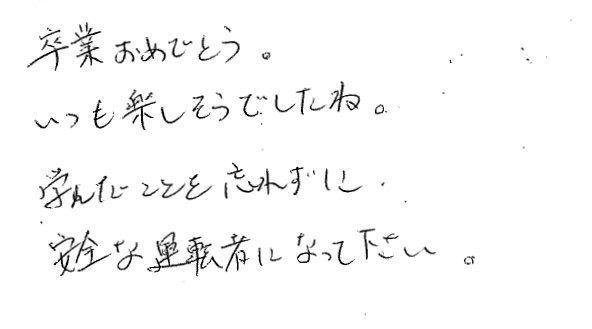 卒業おめでとう。
いつも楽しそうでしたね。
学んだことを忘れずに、
安全な運転者になって下さい。